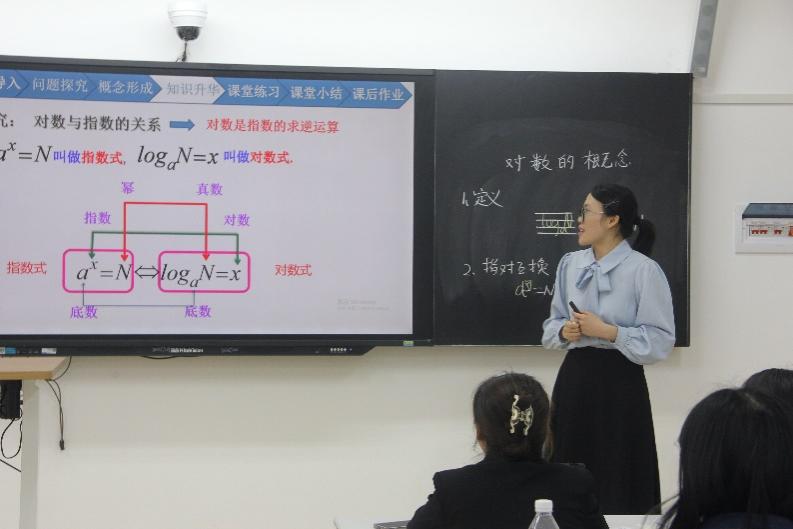 导入 问题探究 概念形成 知识升华 课堂练习 课堂小结 课后作业
究： 对数与指数的关系 对数是指数的求逆运算
aˣ=N叫做指数式, logₐN=x 叫做对数式.
幂 真数
指数 对数
指数式 aˣ=N⇔logₐN=x 对数式
底数 底数
对数的概念
1、定义
logₐN
2、指对互换